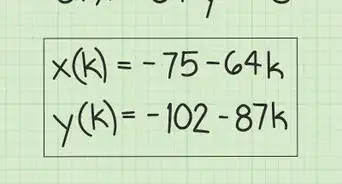 x(k) = -75-64k
y(k) = -102-87k